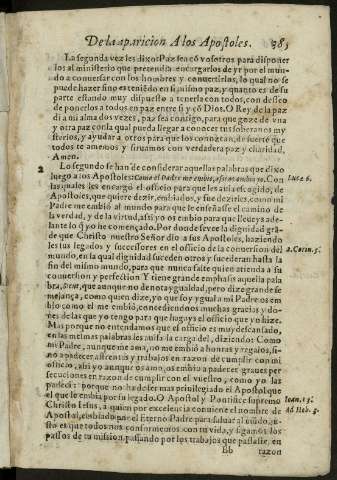 De la aparicion A los Apostoles. 385
La segunda vez les dixo: Paz sea cõ vosotros para disponer
los al ministerio que pretendia encargarlos de yr por el mun-
do a conuersar con los hombres y conuertirlos, lo qual no se
puede hazer sino es teniẽdo en si mismo paz, y quanto es de su
parte estando muy dispuesto a tenerla con todos, con desseo
de ponerlos a todos en paz entre si y cõ Dios. O Rey de la paz
di a mi alma dos vezes, paz sea contigo, para que goze de vna
y otra paz con la qual pueda llegar a conocer tus soberanos my
sterios, y ayudar a otros para que los conozcan, de suerte que
todos te amemos y siruamos con verdadera paz y charidad.
Amen.
2 Lo segundo se han de considerar aquellas palabras que dixo
luego a los Apostoles: Como el Padre me embio, assi os embio yo. Con
las quales les encargò el officio para que les auia escogido, de
Apostoles, que quiere dezir, embiados, y fue dezirles, como mi
Padre me embiò al mundo para que le enseñasse el camino de
la verdad, y de la virtud, assi yo os embio para que lleueys ade-
lante lo q̃ yo he començado. Por donde se ve la dignidad grã-
de que Christo nuestro Señor dio a sus Apostoles, haziendo
les sus legados y successores en el officio de la conuersion del
mundo, en la qual dignidad suceden otros y sucederan hasta la
fin del mismo mundo, para que nunca falte quien atienda a su
conuersion y perfeccion. Y tiene grande emphasis aquella pala
bra, Sicut, que aunque no denota ygualdad, pero dize grande se
mejança, como quien dize, yo que soy ygual a mi Padre os em
bio como el me embiò, concediendoos muchas gracias y do-
nes de las que yo tengo para que hagays el officio que yo hize.
Mas porque no entendamos que el officio es muy descansado,
en las mismas palabras les auisa la carga del, diziendo: Como
mi Padre, aunque me ama, no me embiò a honras y regalos, si-
no a padecer afrentas y trabajos en razon de cumplir con mi
officio, assi yo aunque os amo, os embio a padecer graues per
secuciones en razon de cumplir con el vuestro, como yo las
padeci: porque no ha de ser mas priuilegiado el Apostol que
el que os embia por su legado. O Apostol y Pontifice supremo
Christo Iesus, a quien por excelencia conuiene el nombre de
Apostol, embiado por el Eterno Padre para saluar al mũdo, ajus-
ta es que todos nos conformemos con tu vida, y sigamos los
passos de tu mission, passando por los trabajos que passaste, en
Bb razon
Luc. 6.
2. Corin. 5.
Ioan. 13.
Ad Heb. 3.